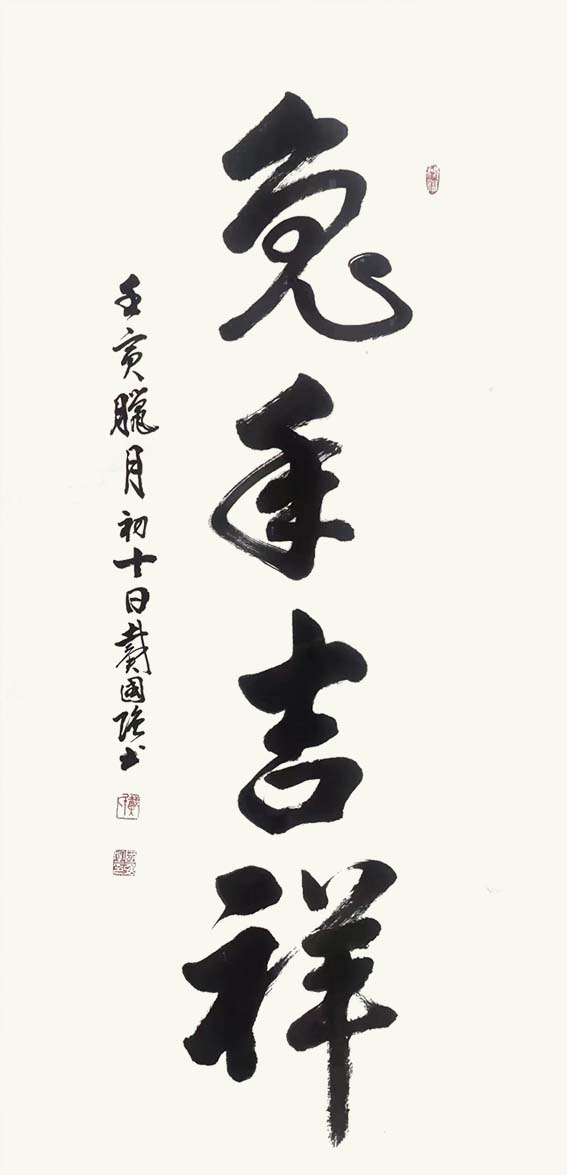 兔年吉祥
壬寅臘月初十日戴國強书